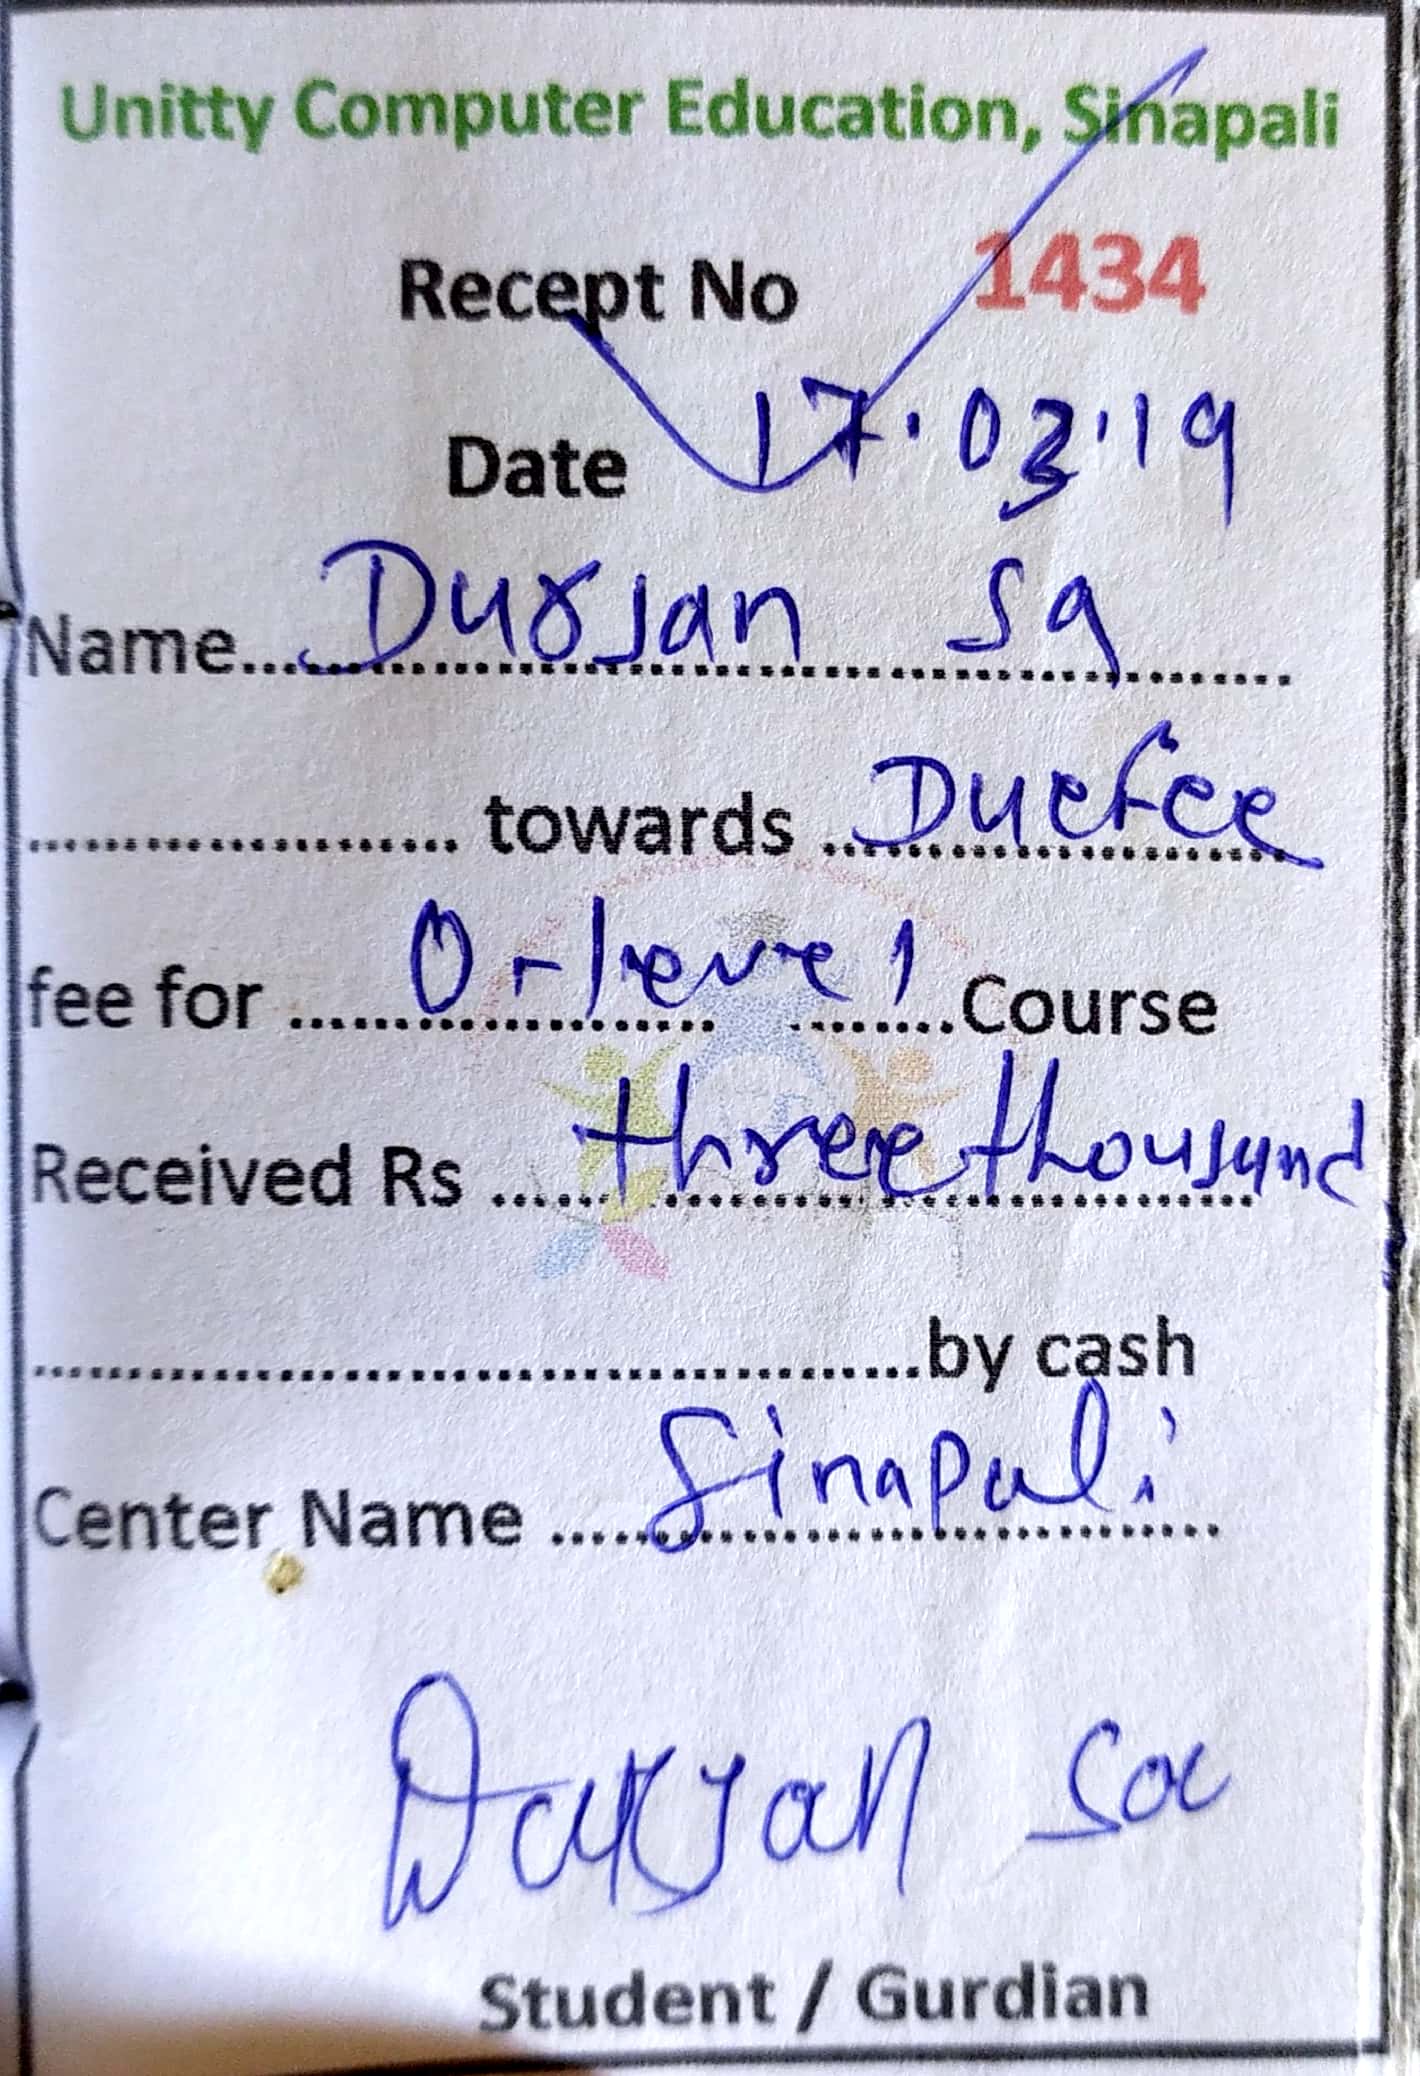 Unitty Computer Education, Sinapali
Recept No 1434
Date 17.03.19
Name....Durjan Sa....
.................... towards ...Duefee....
fee for ......O-level........Course
Received Rs ......three thousand....
........................................by cash
Center Name ......Sinapali......
Durjan Sa
Student / Gurdian